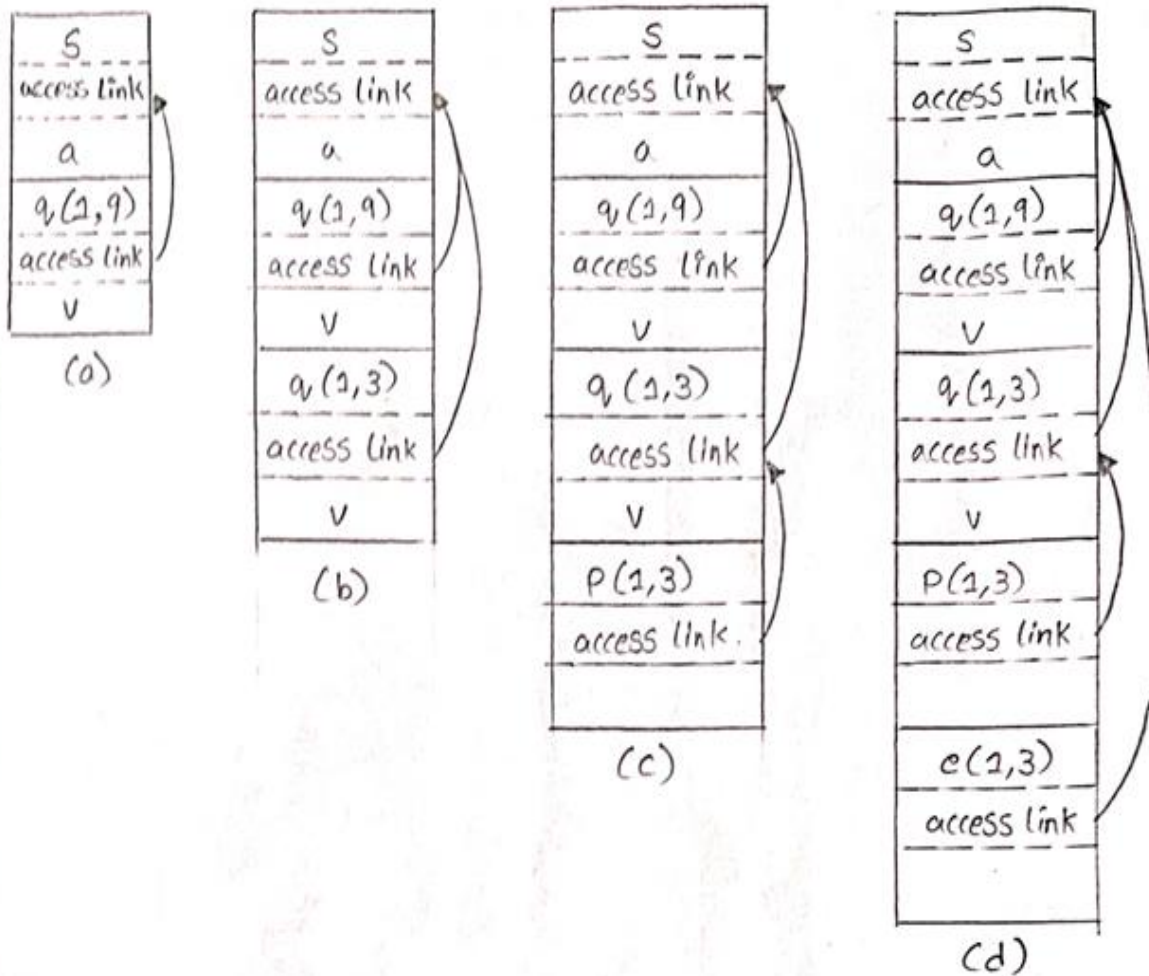 S
access link
a
q(1,9)
access link
v
(a)
S
access link
a
q(1,9)
access link
v
q(1,3)
access link
v
(b)
S
access link
a
q(1,9)
access link
v
q(1,3)
access link
v
P(1,3)
access link
(c)
S
access link
a
q(1,9)
access link
v
q(1,3)
access link
v
P(1,3)
access link
e(1,3)
access link
(d)